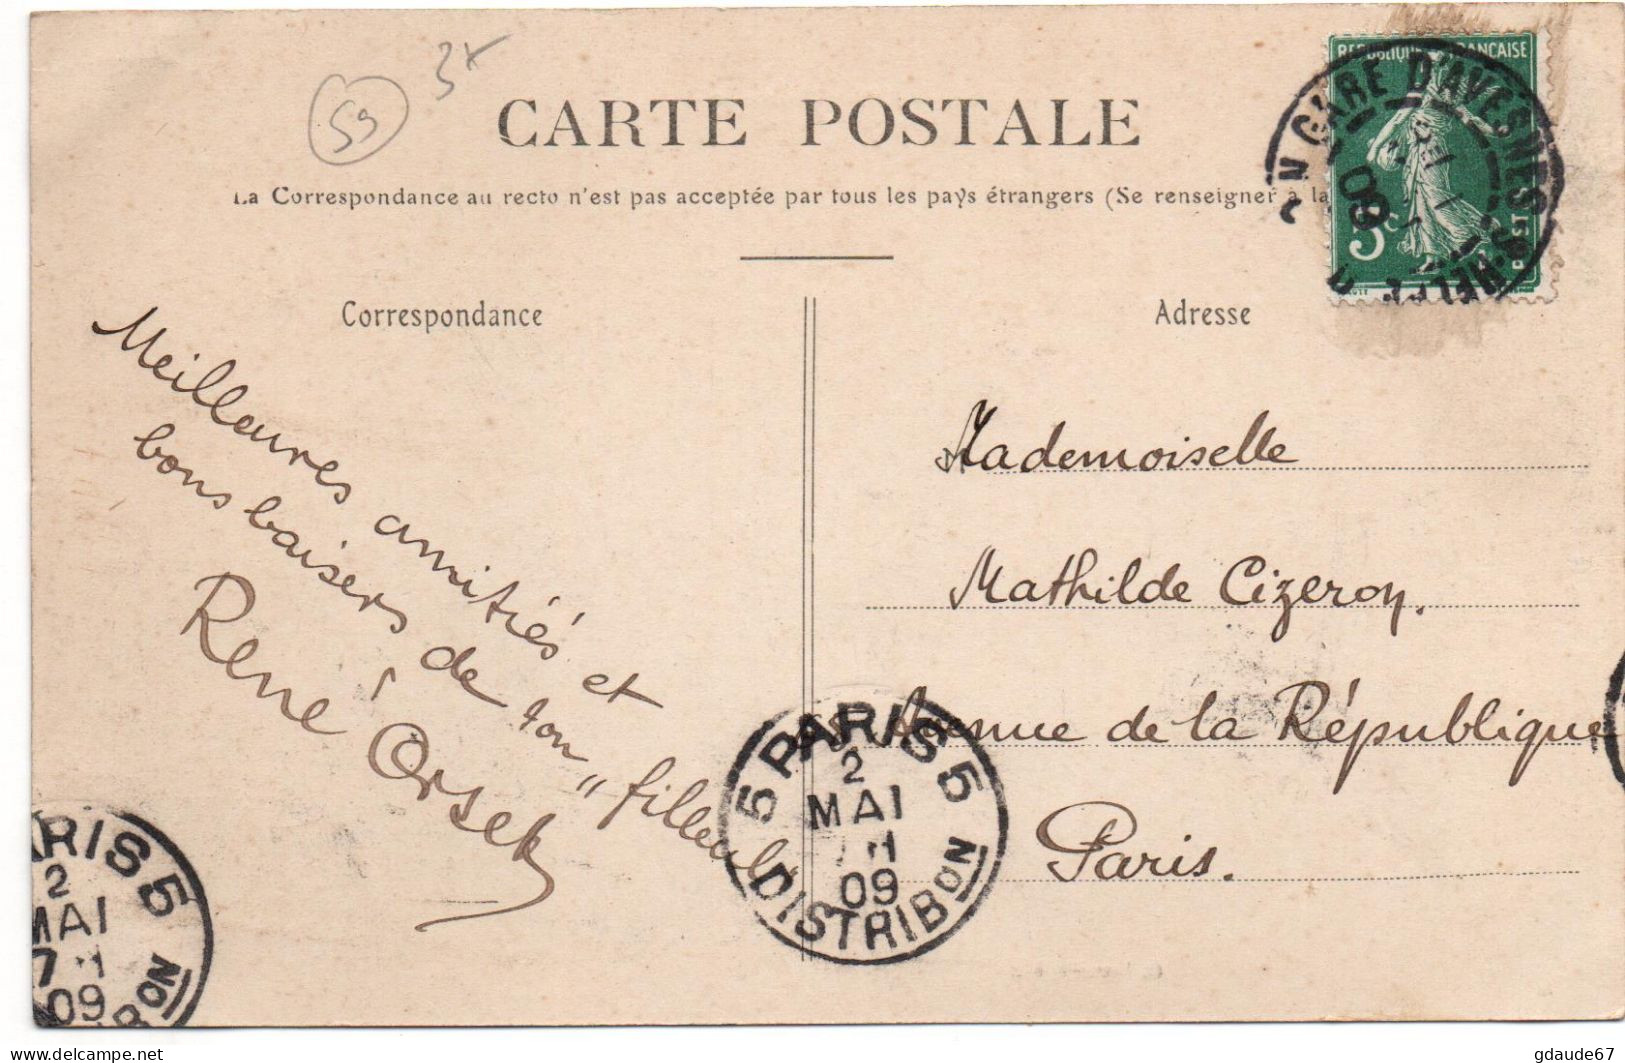 59
3x
CARTE POSTALE
La Correspondance au recto n'est pas acceptée par tous les pays étrangers (Se renseigner à la
REPUBLIQUE FRANÇAISE
5c
GARE D'AVESNES
09
Correspondance
Adresse
Meilleures amitiés et
bons baisers de ton "filleul"
René
Mademoiselle
Mathilde Cizeron.
Avenue de la République
Paris.
5 PARIS 5
2
MAI
09
DISTRIBON
ARIS 5
2
MAI
7
09
delcampe.net
gdaude67